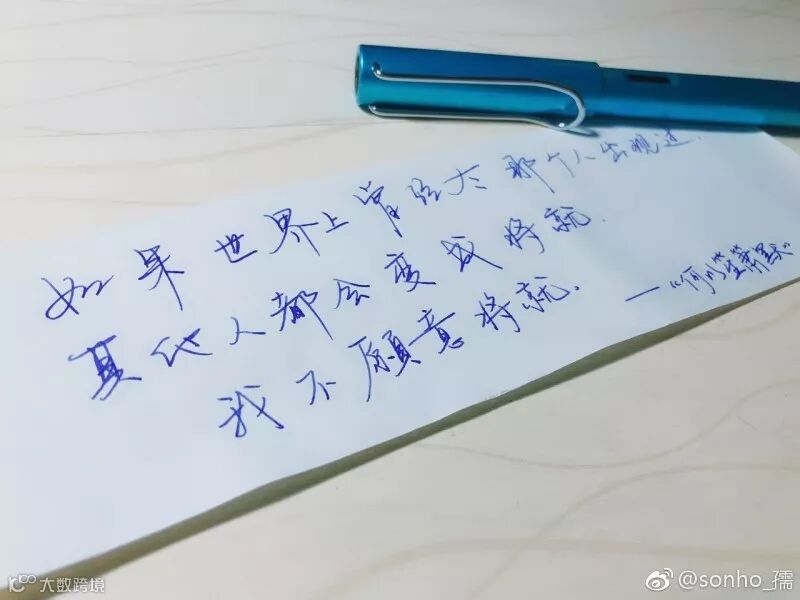 如果世界上曾经有那个人出现过.
其他人都会变成将就.
我不愿意将就.
——《何以笙箫默》
大数跨境
@sonho_孺